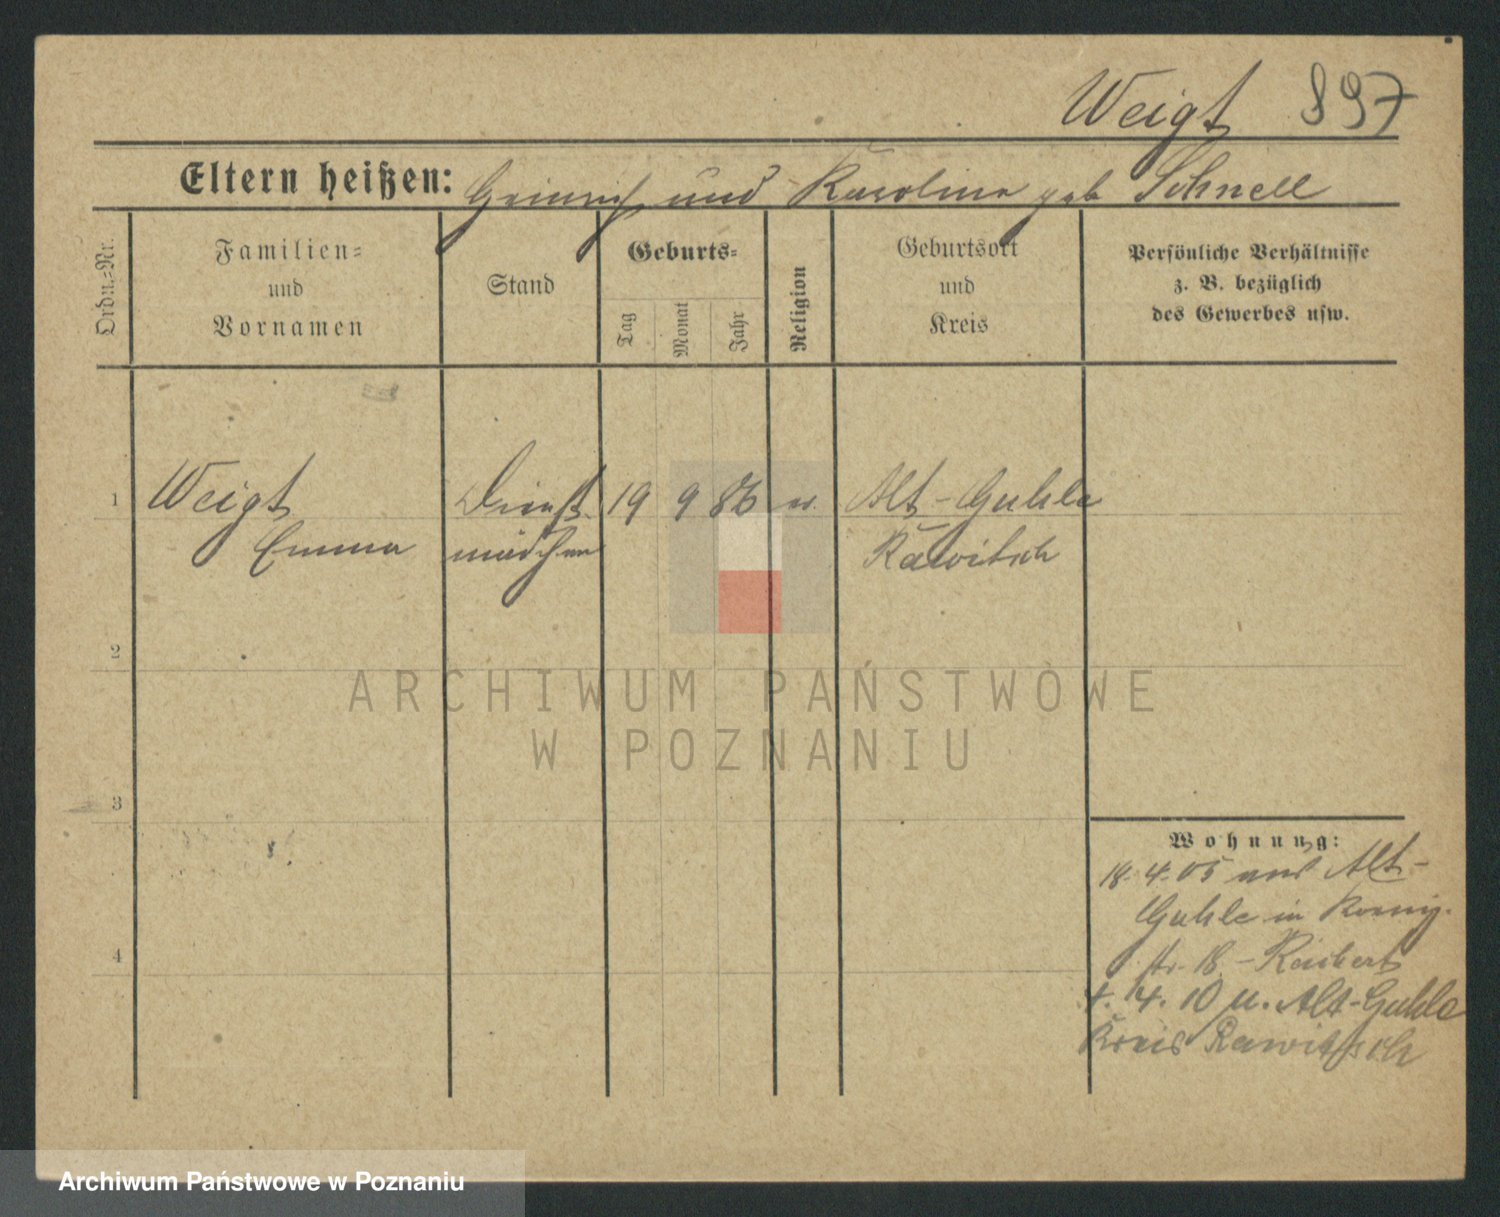 Weigt 897
Eltern heißen: Heinrich und Karolina geb Schnell
Ordn.=Nr.
Familien=
und
Vornamen
Stand
Geburts=
Tag
Monat
Jahr
Religion
Geburtsort
und
Kreis
Persönliche Verhältnisse
z. B. bezüglich
des Gewerbes usw.
1 Weigt Dienst 19 9 86 Alt-Guhle
Emma mädchen Rawitsch
2
3
4
Wohnung:
18. 4. 05 aus Alt-
Guhle in Koenig.
str. 18 -
4. 10 u. Alt-Guhle
Kreis Rawitsch
ARCHIWUM PAŃSTWOWE
W POZNANIU
Archiwum Państwowe w Poznaniu